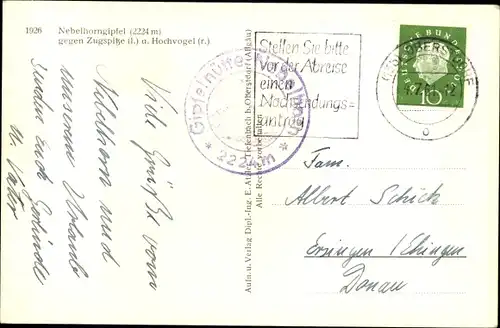 1926 Nebelhorngipfel (2224 m)
gegen Zugspitze (l.) u. Hochvogel (r.)
Viele Grüße vom
Nebelhorn und
unserem Urlaub
senden Euch Gerlinde
u. Vater
Gipfelhütte Nebelhorn
* 2224m *
Aufn. u. Verlag Dipl.-Ing. E. Tiefenbach b. Oberstdorf (Allgäu)
Alle Rechte vorbehalten
Stellen Sie bitte
vor der Abreise
einen
Nachsendungs=
antrag
OBERSTDORF
DEUTSCHE BUNDESPOST
10
Fam.
Albert Schick
Ersingen / Ehingen
Donau